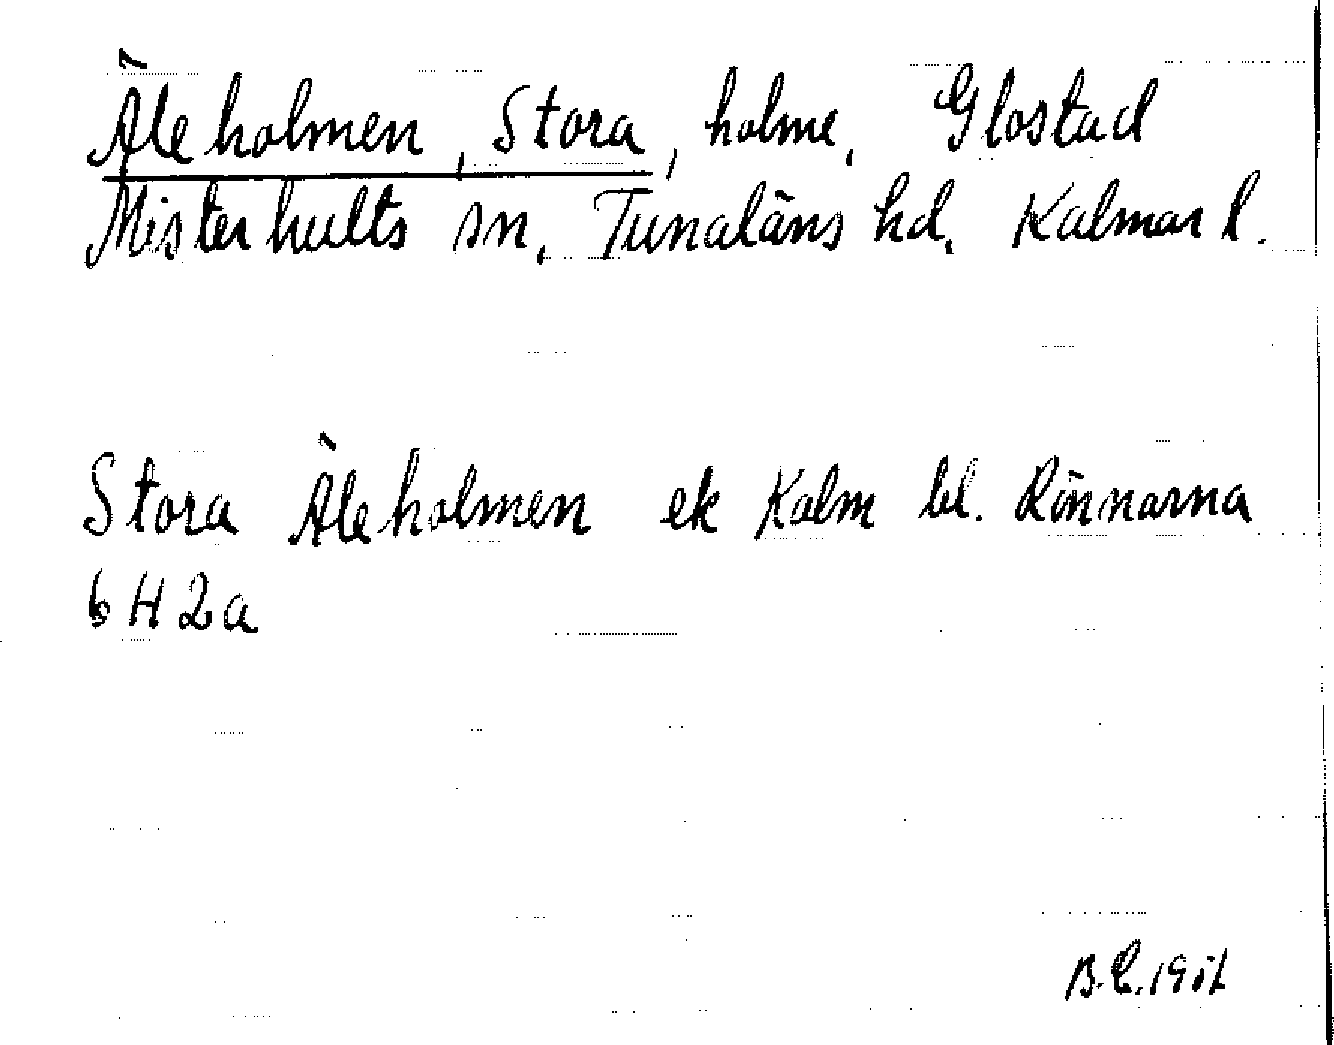 Åleholmen, Stora, holme, Glostad
Misterhults sn, Tunaläns hd, Kalmar l.
Stora Åleholmen ek Kalm bl. Rönnarna
6 H 2 a